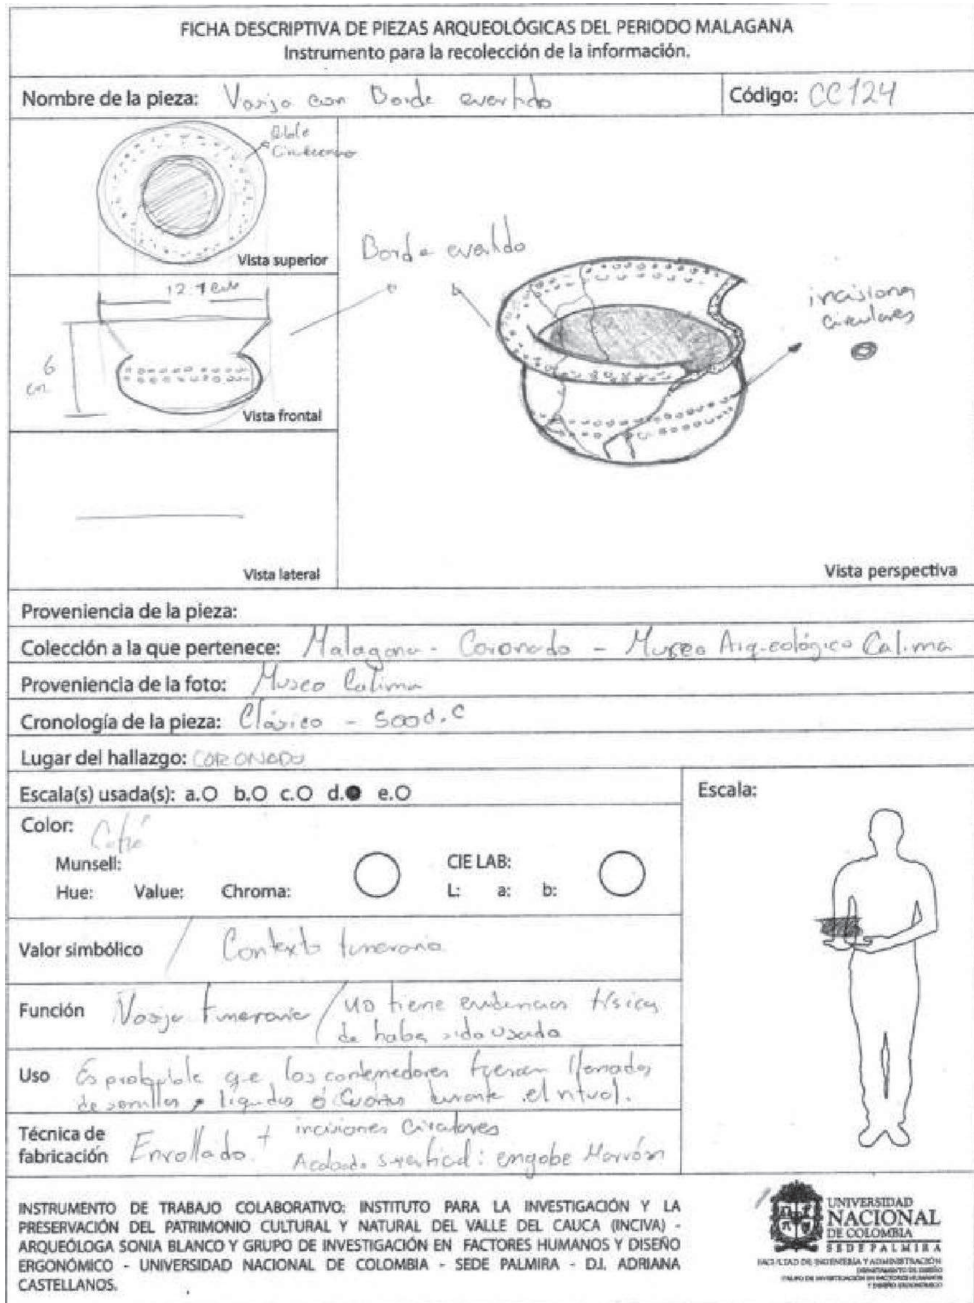 FICHA DESCRIPTIVA DE PIEZAS ARQUEOLÓGICAS DEL PERIODO MALAGANA
Instrumento para la recolección de la información.
Nombre de la pieza: Vasija con Borde evertido
Código: CC124
Doble
Vista superior
12.1 cm
6 cm
Vista frontal
Vista lateral
Borde evertido
incisiones
circulares
Vista perspectiva
Proveniencia de la pieza:
Colección a la que pertenece: Malagana - Coronado - Museo Arqueológico Calima
Proveniencia de la foto: Museo Calima
Cronología de la pieza: Clásico - 500 d.C
Lugar del hallazgo: CORONADO
Escala(s) usada(s): a. b. c. d. e.
Escala:
Color: Café
Munsell:
Hue: Value: Chroma:
CIE LAB:
L: a: b:
Valor simbólico / Contexto funerario
Función Vasija funeraria / no tiene evidencias físicas
de haber sido usada
Uso Es probable que los contenedores fueran llenados
de semillas, líquidos ó durante el ritual.
Técnica de
fabricación Enrollado + incisiones circulares
Acabado superficial: engobe Marrón
INSTRUMENTO DE TRABAJO COLABORATIVO: INSTITUTO PARA LA INVESTIGACIÓN Y LA
PRESERVACIÓN DEL PATRIMONIO CULTURAL Y NATURAL DEL VALLE DEL CAUCA (INCIVA) -
ARQUEÓLOGA SONIA BLANCO Y GRUPO DE INVESTIGACIÓN EN FACTORES HUMANOS Y DISEÑO
ERGONÓMICO - UNIVERSIDAD NACIONAL DE COLOMBIA - SEDE PALMIRA - D.I. ADRIANA
CASTELLANOS.
UNIVERSIDAD
NACIONAL
DE COLOMBIA
SEDE PALMIRA
FACULTAD DE INGENIERÍA Y ADMINISTRACIÓN
DEPARTAMENTO DE DISEÑO
GRUPO DE INVESTIGACIÓN EN FACTORES HUMANOS
Y DISEÑO ERGONÓMICO